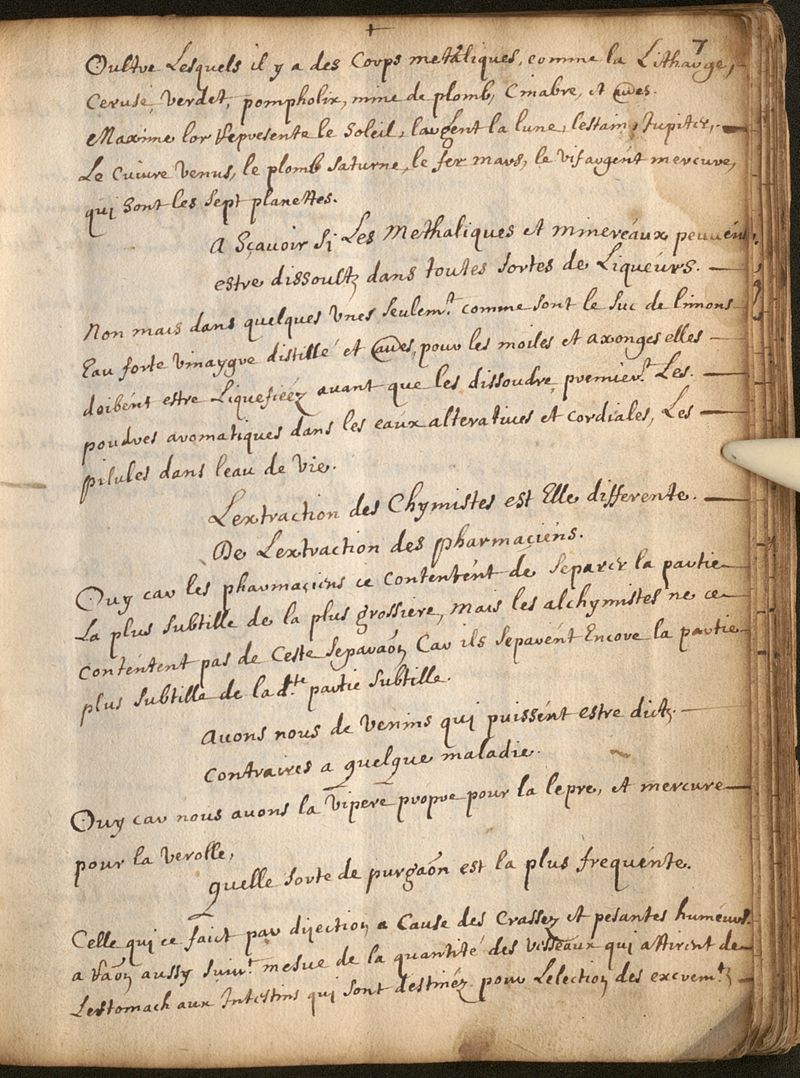 7
Oultre Lesquels il y a des Corps metaliques, comme la Litharge,
Ceruse, Verdet, pompholix, mine de plomb, Cinabre, et
Maxime lor Represente le Soleil, largent la lune, lestain, Jupiter,
Le Cuivre Venus, le plomb Saturne, le fer mars, le vif argent mercure,
qui Sont les Sept planettes.
A Sçavoir Si Les Methaliques et minereaux peuvent
estre dissoultz dans toutes Sortes de Liqueurs.
Non mais dans quelques Vnes Seulem.t comme sont le Suc de limons
Eau forte vinaygre distillé et pour les moiles et axonges elles
doibent estre Liquefiéez auant que les dissoudre, premier.t Les
poudres aromatiques dans les eaux alteratiues et cordiales, Les
pilules dans leau de vie.
Lextraction des Chymistes est Elle differente
De Lextraction des pharmaciens.
Ouy car les pharmaciens ce Contentent de Separer la partie
La plus Subtille de la plus grossiere, mais les alchymistes ne ce
Contentent pas de Ceste Separaōn Car ils Separent Encore la partie
plus Subtille de lad.te partie Subtille.
Auons nous de Venins qui puissent estre dictz
Contraires a quelque maladie.
Ouy car nous auons la Vipere propre pour la lepre, et mercure
pour la Verolle,
quelle Sorte de purgaōn est la plus frequente.
Celle qui ce faict par dijection a Cause des Crassez et pesantes humeurs.
a Raōn aussy Suiu.t mesue de la quantité des visseaux qui attirent de
Lestomach aux Intestins qui Sont destinéz pour Lelection des excrem.tz